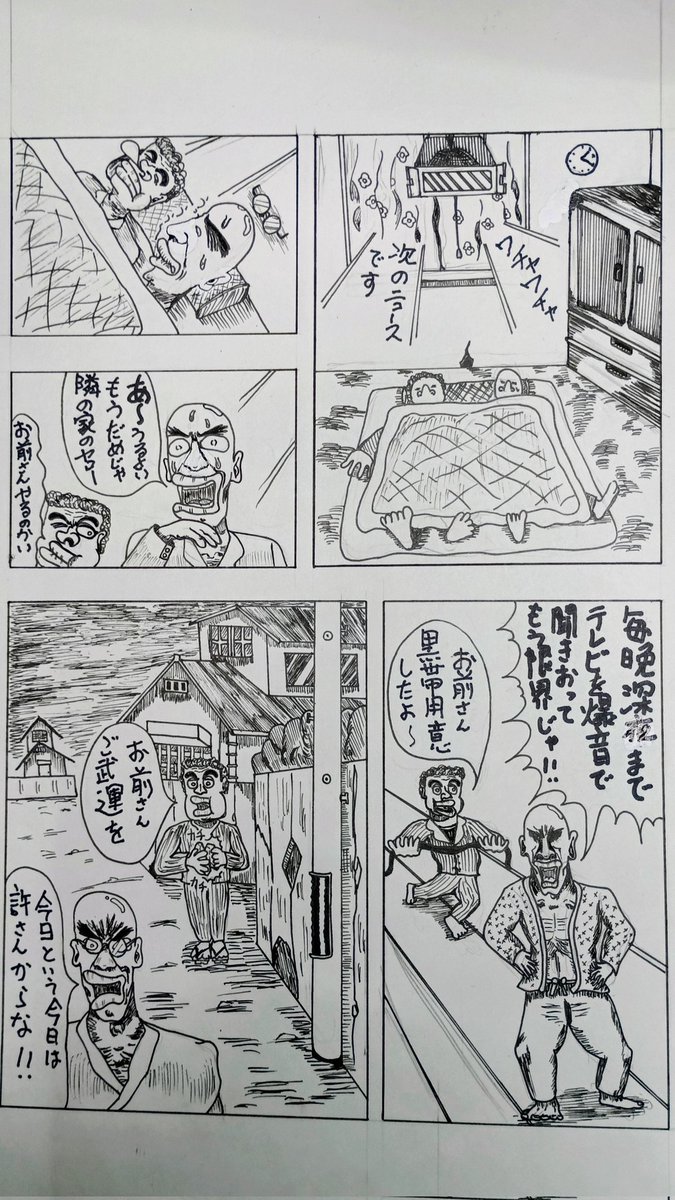 ワチャワチャ
次のニュース
です
あ〜うるさい
もうだめじゃ
隣の家のヤロー
お前さんやるのかい
毎晩深夜まで
テレビを爆音で
聞きおって
もう限界じゃ!!
お前さん
黒帯用意
したよ〜
お前さん
ご武運を
カチ
カチ
今日という今日は
許さんからな!!